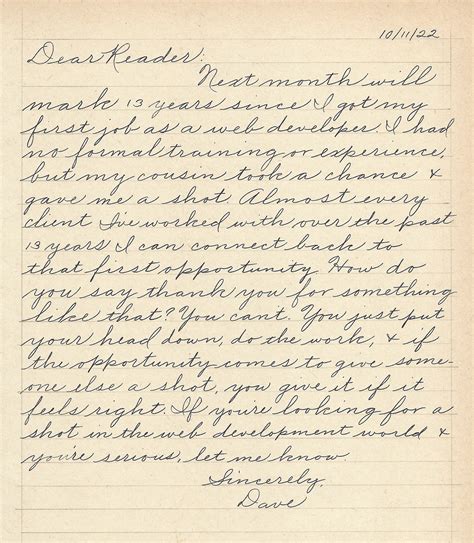 10/11/22
Dear Reader:
Next month will
mark 13 years since I got my
first job as a web developer. I had
no formal training or experience,
but my cousin took a chance &
gave me a shot. Almost every
client I've worked with over the past
13 years I can connect back to
that first opportunity. How do
you say thank you for something
like that? You cant. You just put
your head down, do the work, & if
the opportunity comes to give some-
one else a shot, you give it if it
feels right. If you're looking for a
shot in the web development world &
you're serious, let me know.
Sincerely,
Dave